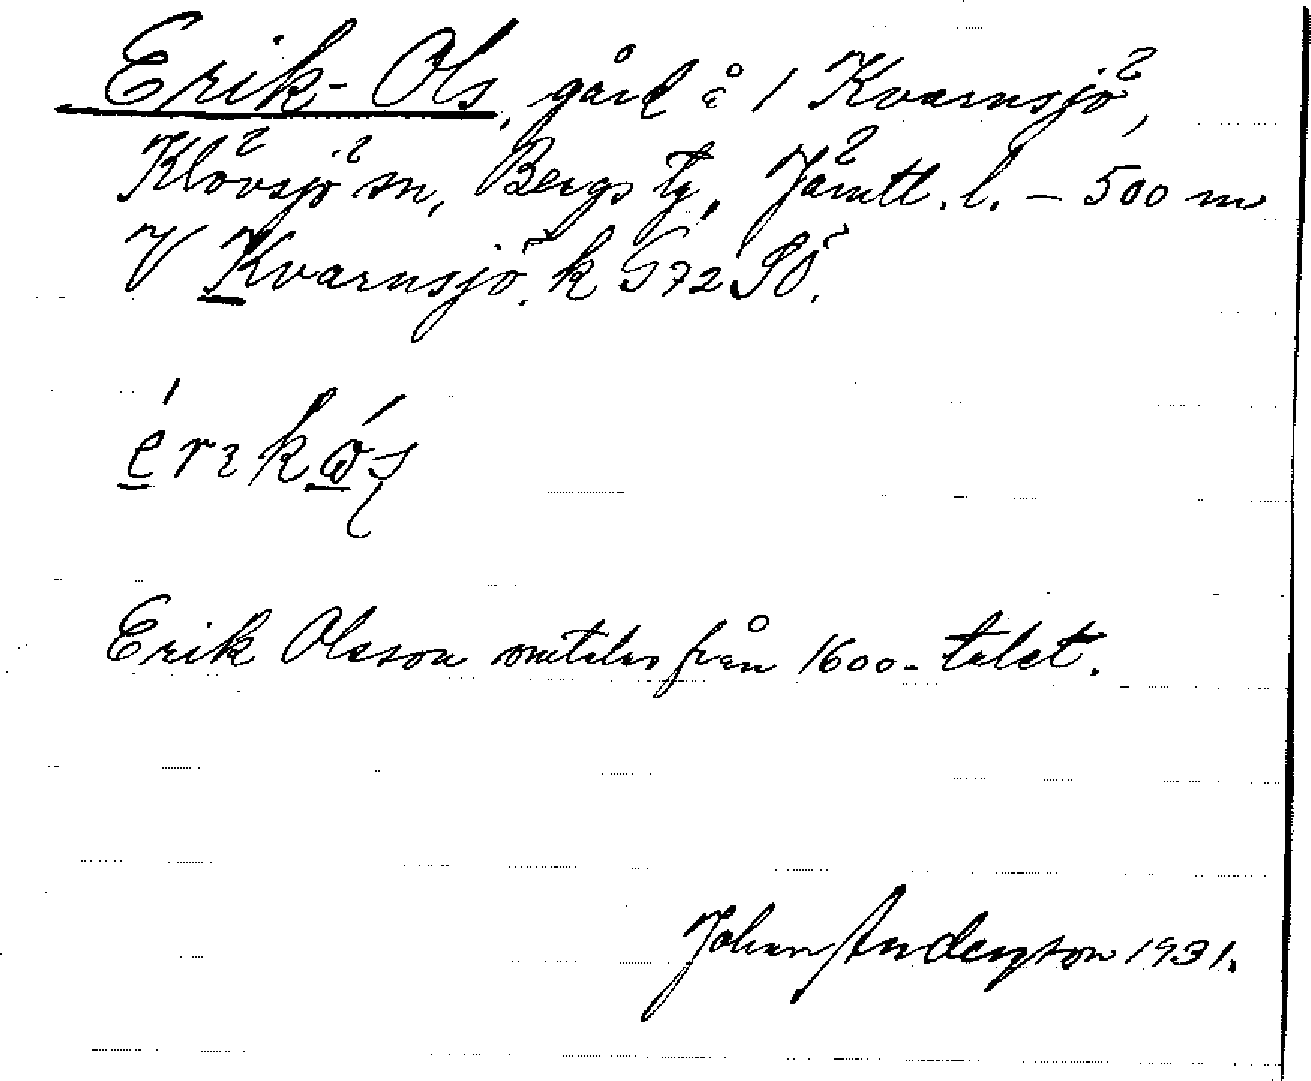 Erik-Ols, gård å 1 Kvarnsjö,
Klövsjö sn, Bergs tg, Jämtl. l. – 500 m
V Kvarnsjö. k G72 SÖ.
Erik Olsson omtalas från 1600-talet.
Johan Anderzson 1931.